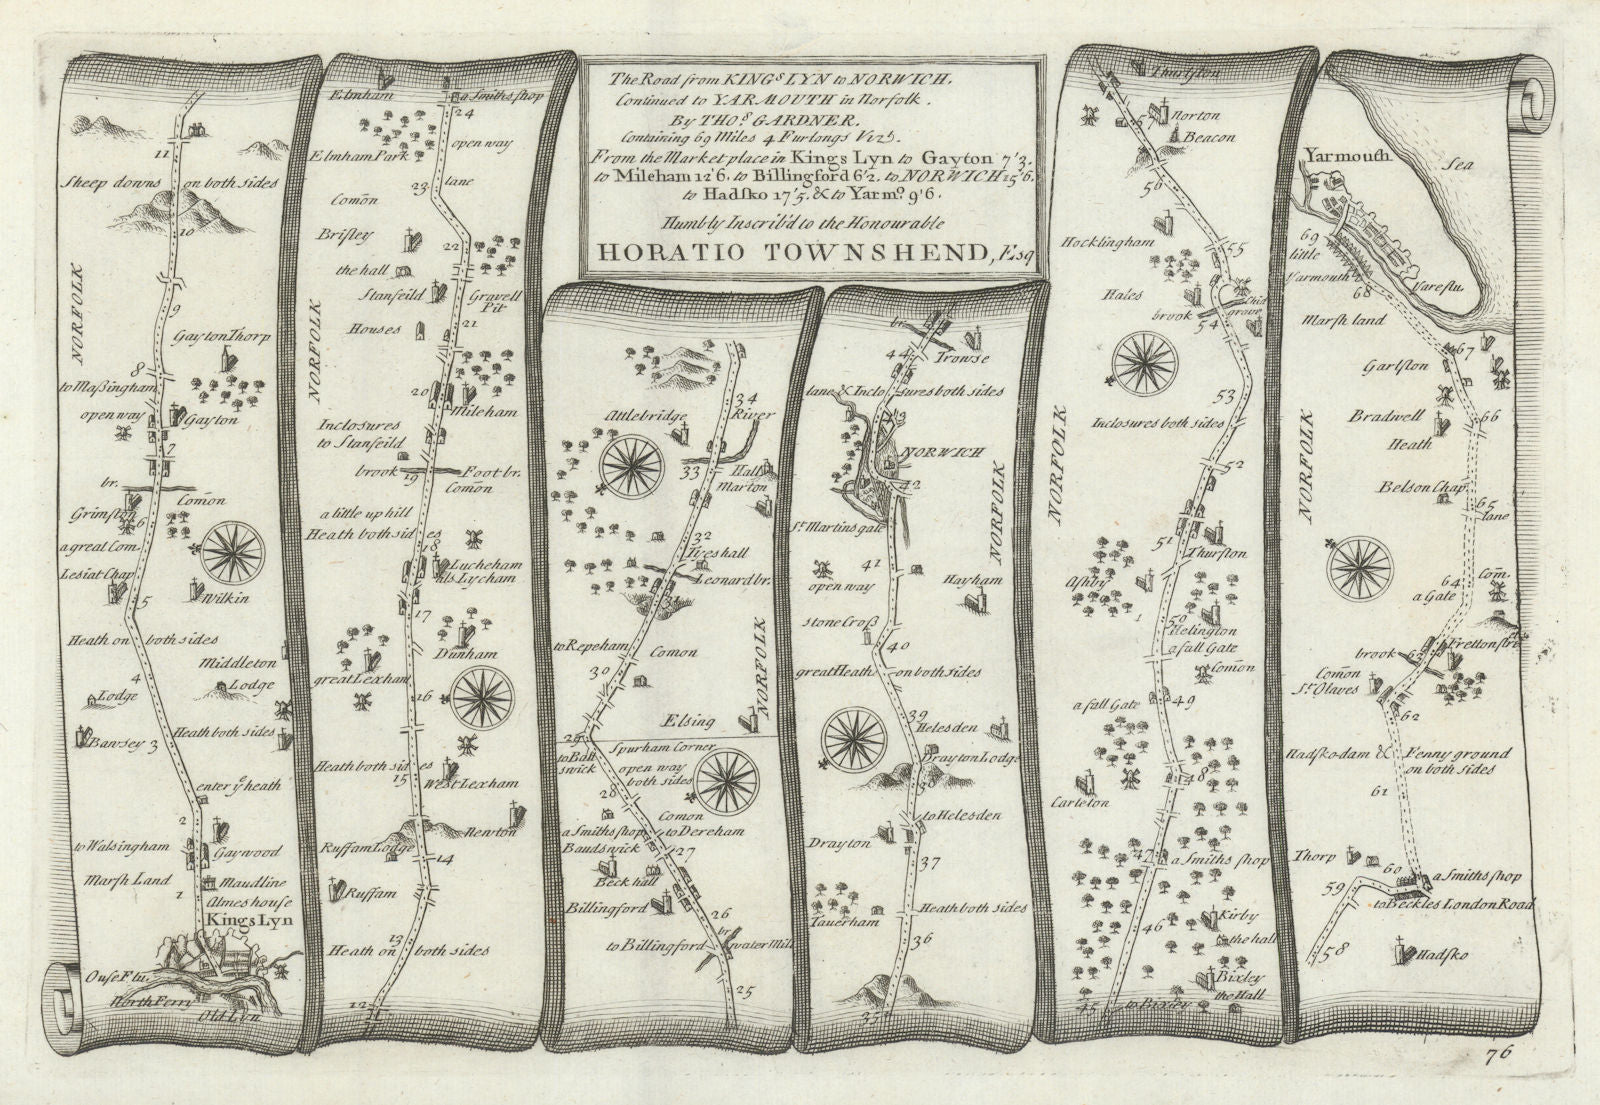 The Road from KINGS LYN to NORWICH.
Continued to YARMOUTH in Norfolk.
By THOS. GARDNER.
Containing 69 Miles 4 Furlongs Viz.
From the Market place in Kings Lyn to Gayton 7'3.
to Mileham 12'6. to Billingford 6'2. to NORWICH 15'6.
to Hadsko 17'5. & to Yarmo. 9'6.
Humbly Inscrib'd to the Honourable
HORATIO TOWNSHEND, Esq
11
Sheep downs on both sides
10
NORFOLK
9
Gayton Thorp
8
to Maßingham
open way
Gayton
7
br.
Comōn
Grimston
6
a great Com.
Lesiat Chap
Wilkin
5
Heath on both sides
Middleton
4
Lodge
Lodge
Bawsey
3
Heath both sides
enter ye heath
2
to Walsingham
Gaywood
Marsh Land
1
Maudline
Almes house
Kings Lyn
Ouse Flu.
North Ferry
Old Lyn
Elmham
a Smiths shop
24
Elmham Park
open way
23
lane
Comōn
Brisley
22
the hall
Stanfeild
Gravell
Pit
NORFOLK
Houses
21
20
Mileham
Inclosures
to Stanfeild
brook
19
Foot br.
Comōn
a little up hill
Heath both sides
18
Lucheham
als Lycham
17
Dunham
great Lexham
16
Heath both sides
15
West Lexham
Newton
Ruffam Lodge
14
Ruffam
13
Heath on both sides
12
34
River
Attlebridge
33
Hall
Marton
32
Iveshall
Leonard br.
31
to Repeham
Comon
30
NORFOLK
Elsing
29
Spurham Corner
open way
both sides
28
Comon
a Smiths shop
to Dereham
Baudswick
27
Beck hall
Billingford
26
to Billingford
br.
water Mill
25
br.
Trowse
44
lane & Inclosures both sides
43
NORWICH
42
NORFOLK
St. Martins gate
41
open way
Hayham
stone Croß
40
great Heath on both sides
39
Helesden
Drayton Lodge
38
to Helesden
Drayton
37
Taverham
Heath both sides
36
35
Thurston
57
Norton
Beacon
56
Hocklingham
55
Hales
brook
54
53
NORFOLK
Inclosures both sides
52
51
Thurston
Ashby
50
Helington
a fall Gate
Comōn
a fall Gate
49
48
Carleton
47
a Smiths shop
Kirby
the hall
46
Bixley
the Hall
45
to Bixley
Yarmouth
Sea
69
little
Yarmouth
68
Yare flu.
Marsh land
67
Garlston
66
Bradwell
Heath
NORFOLK
Belson Chap.
65
lane
64
Com̄.
a Gate
brook
63
Comōn
St. Olaves
62
Hadsko dam & Fenny ground
on both sides
61
Thorp
60
a Smiths shop
59
to Beckles London Road
58
Hadsko
76